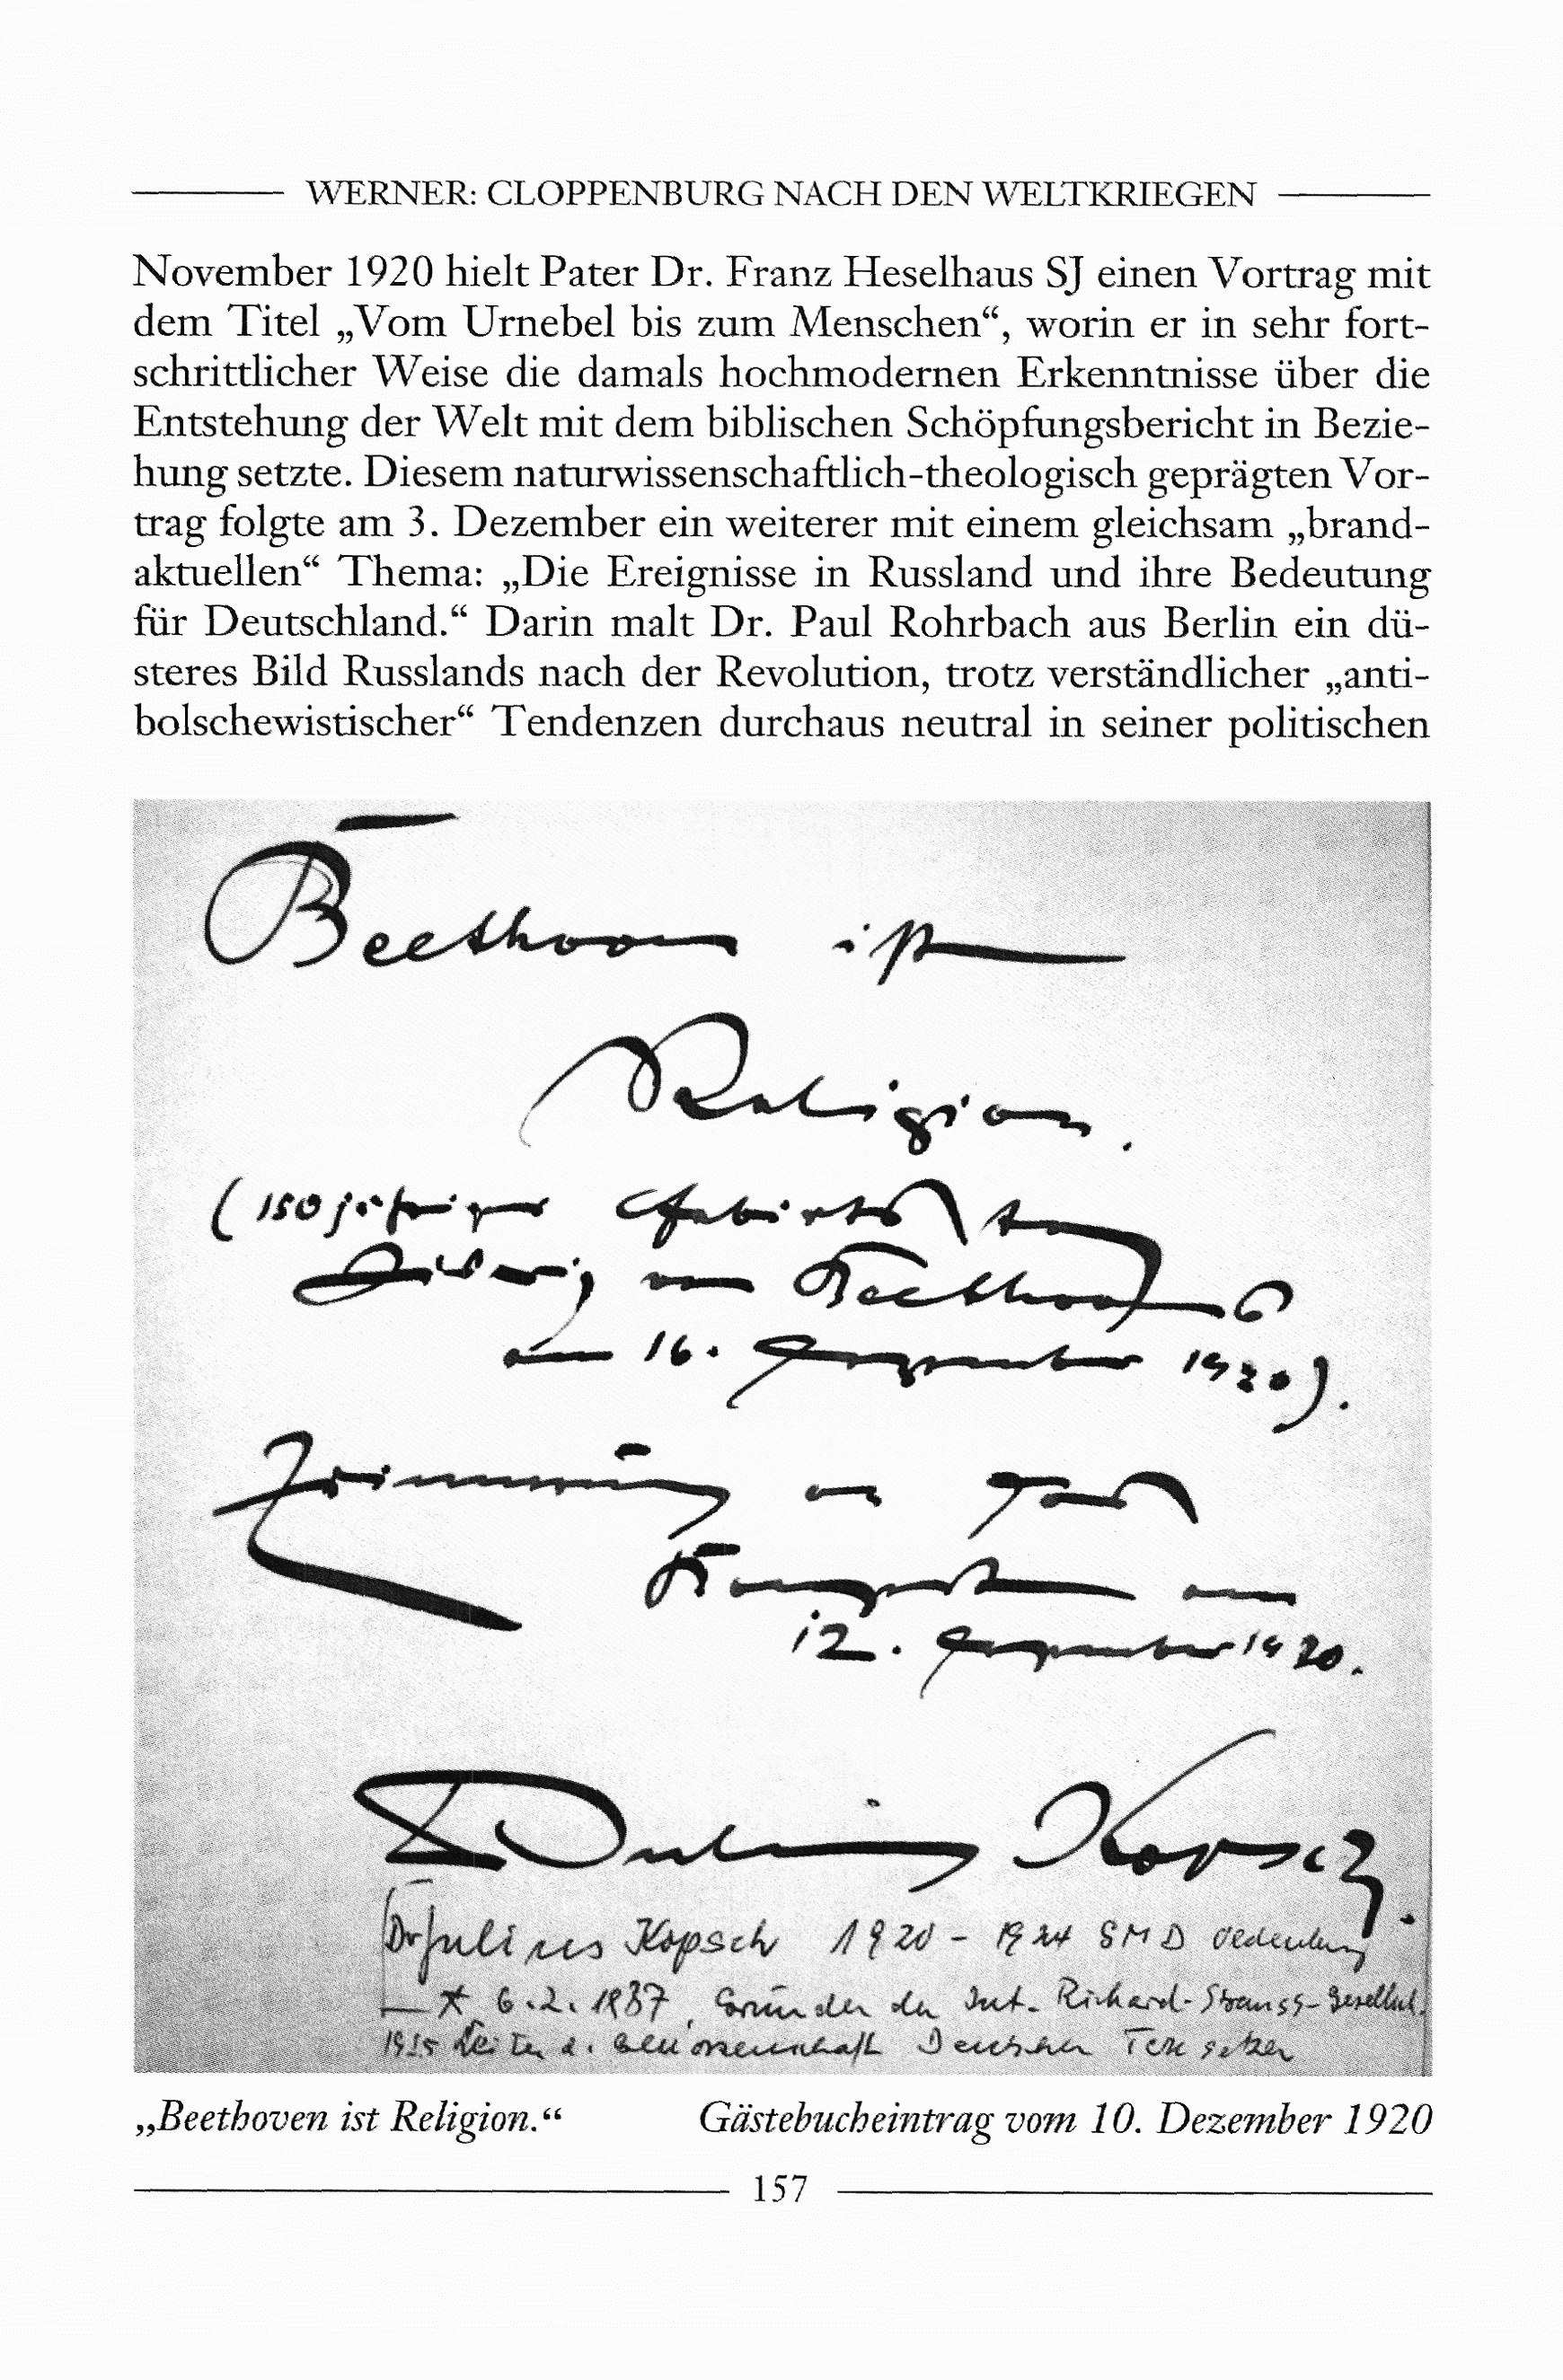 WERNER: CLOPPENBURG NACH DEN WELTKRIEGEN
November 1920 hielt Pater Dr. Franz Heselhaus SJ einen Vortrag mit
dem Titel „Vom Urnebel bis zum Menschen“, worin er in sehr fort-
schrittlicher Weise die damals hochmodernen Erkenntnisse über die
Entstehung der Welt mit dem biblischen Schöpfungsbericht in Bezie-
hung setzte. Diesem naturwissenschaftlich-theologisch geprägten Vor-
trag folgte am 3. Dezember ein weiterer mit einem gleichsam „brand-
aktuellen“ Thema: „Die Ereignisse in Russland und ihre Bedeutung
für Deutschland.“ Darin malt Dr. Paul Rohrbach aus Berlin ein dü-
steres Bild Russlands nach der Revolution, trotz verständlicher „anti-
bolschewistischer“ Tendenzen durchaus neutral in seiner politischen
Beethoven ist
Religion.
(150 jähriger Geburtstag
Ludwig van Beethovens
am 16. Dezember 1920).
Erinnerung an das
Konzert am
12. Dezember 1920.
Julius Kopsch.
Dr Julius Kopsch 1920 - 1924 GMD Oldenburg
* 6.2.1887, Gründer der Int. Richard-Strauss-Gesellsch.
1935 Leiter d. Genossenschaft Deutscher Tonsetzer
„Beethoven ist Religion.“ Gästebucheintrag vom 10. Dezember 1920
157